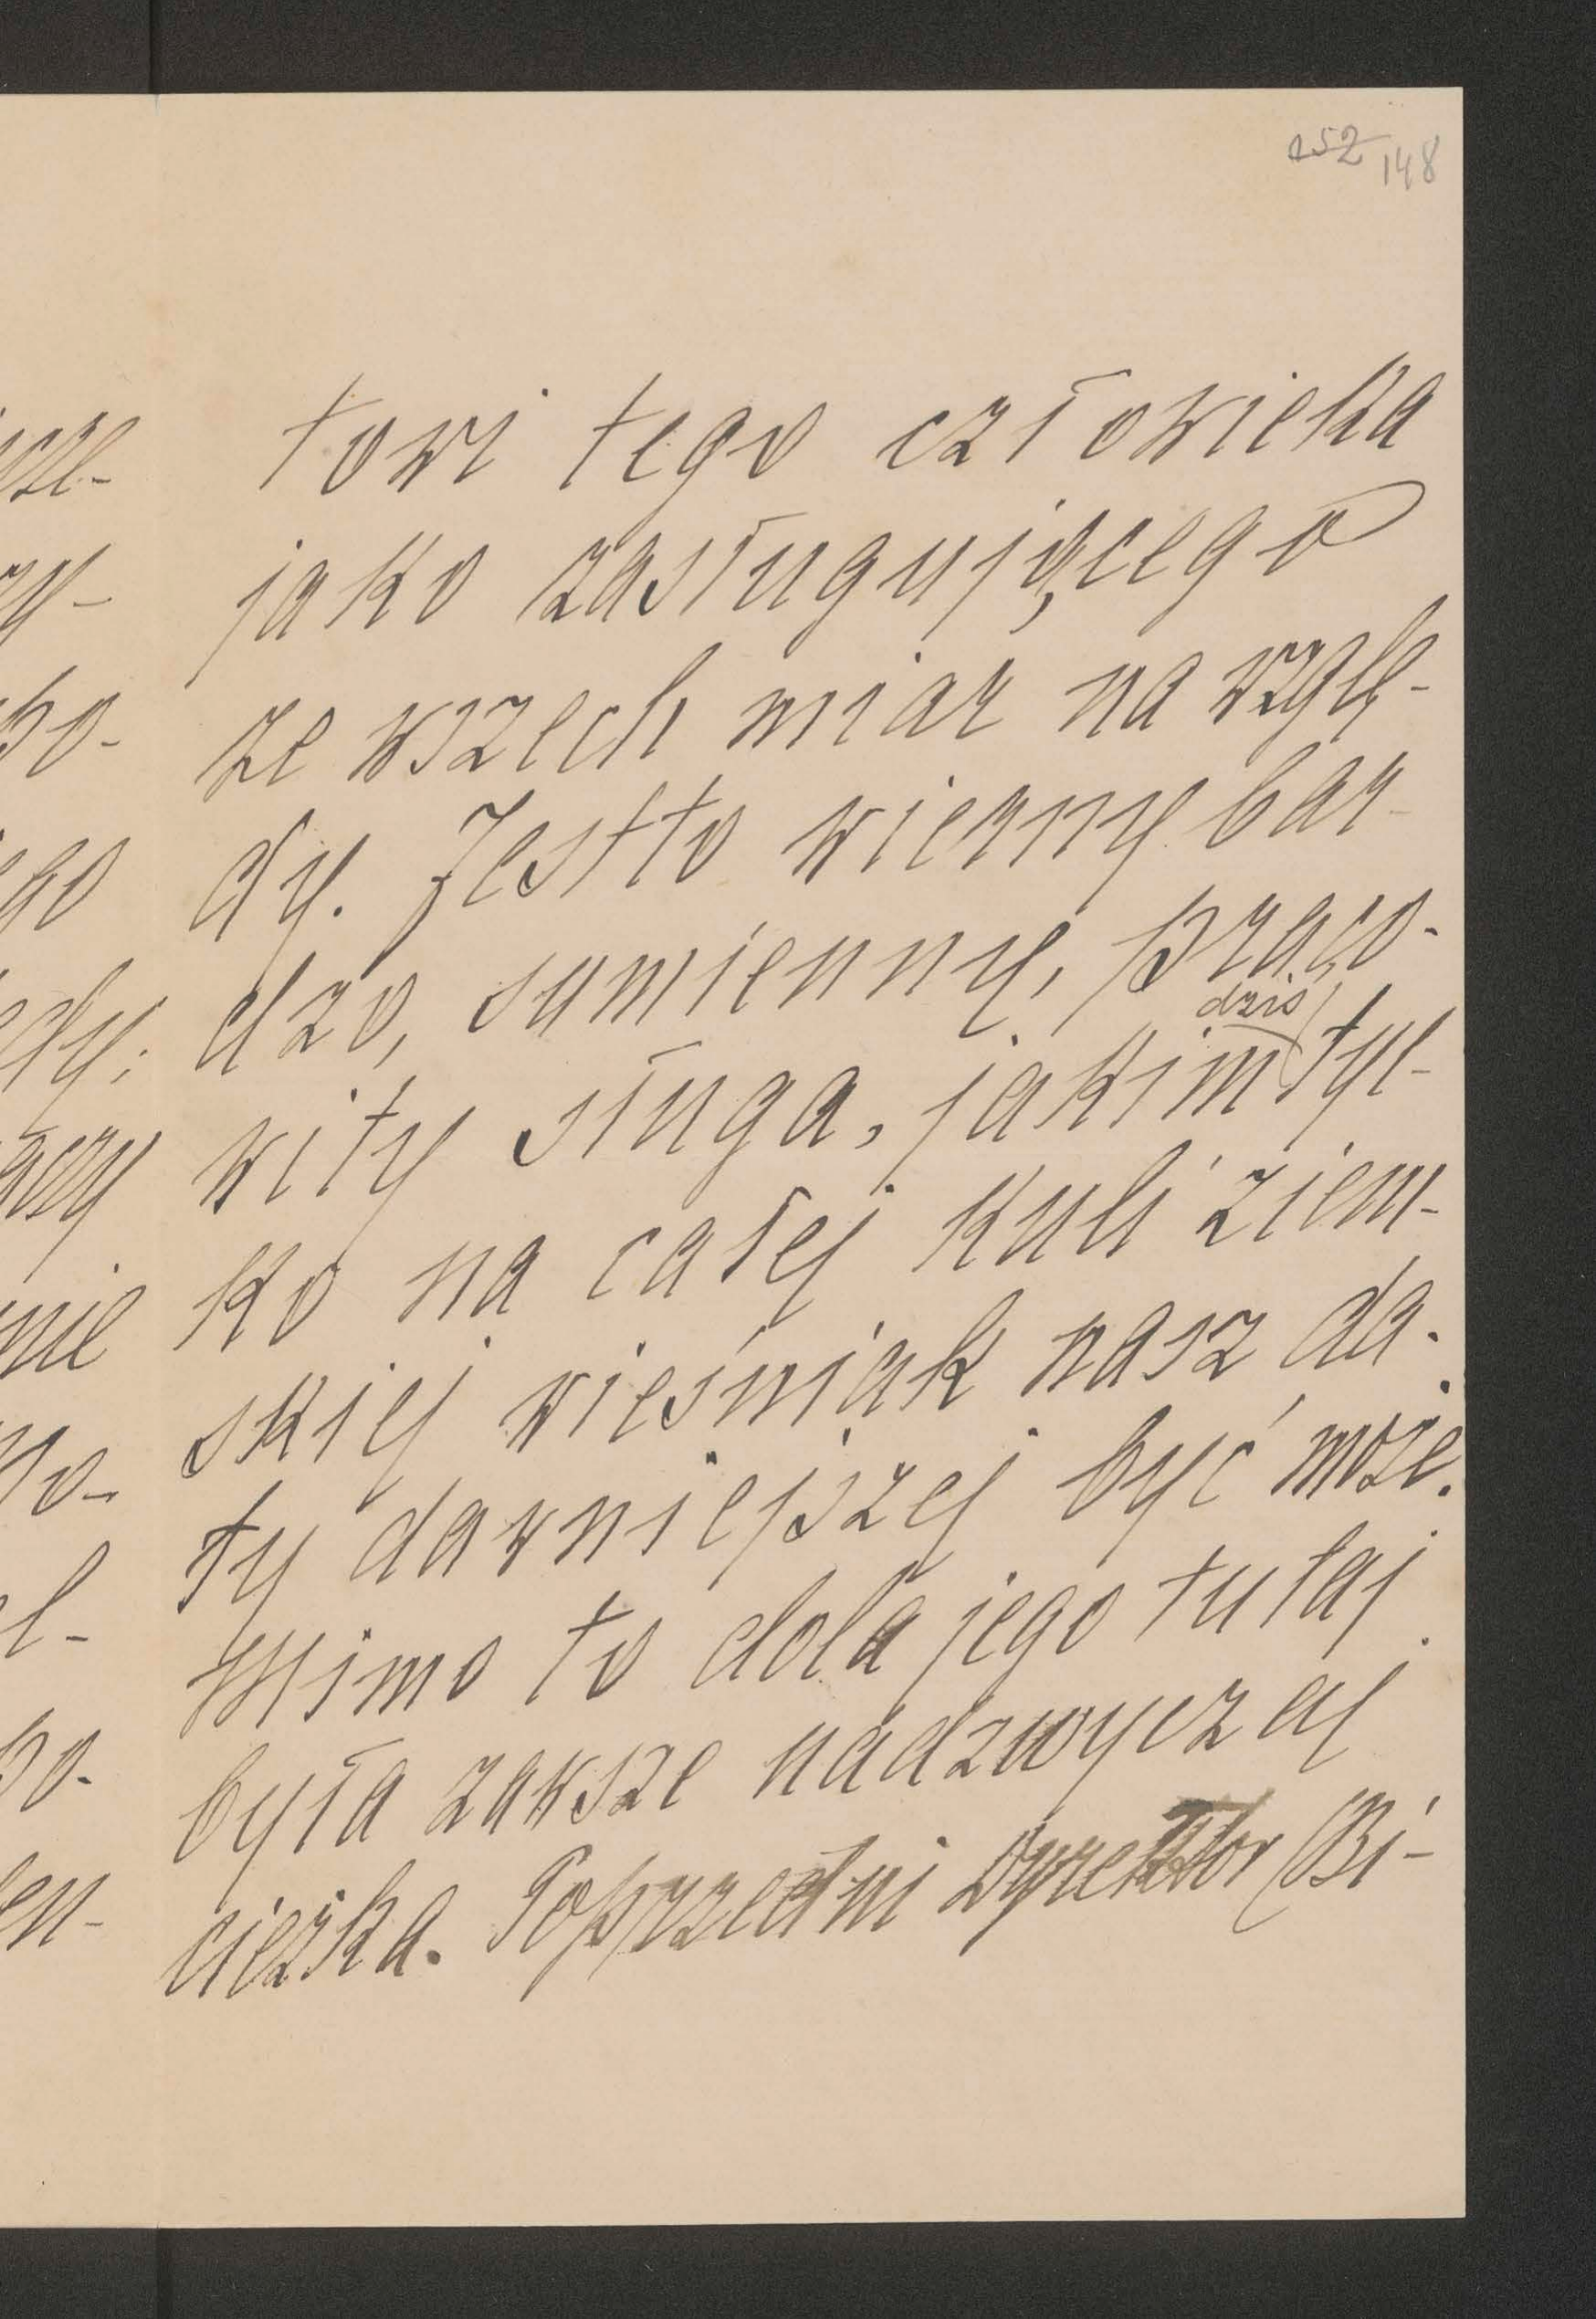 152 148
towi tego człowieka
jako zasługującego
ze wszech miar na wzglę-
dy. Jestto wierny bar-
dzo, sumienny, praco-
dziś
wity sługa, jakim tyl-
ko na całej kuli ziem-
skiej wieśniak nasz da-
ty dawniejszej być może.
Mimo to dola jego tutaj
była zawsze nadzwyczaj
ciężka. Poprzedni Dyrektor Bi-